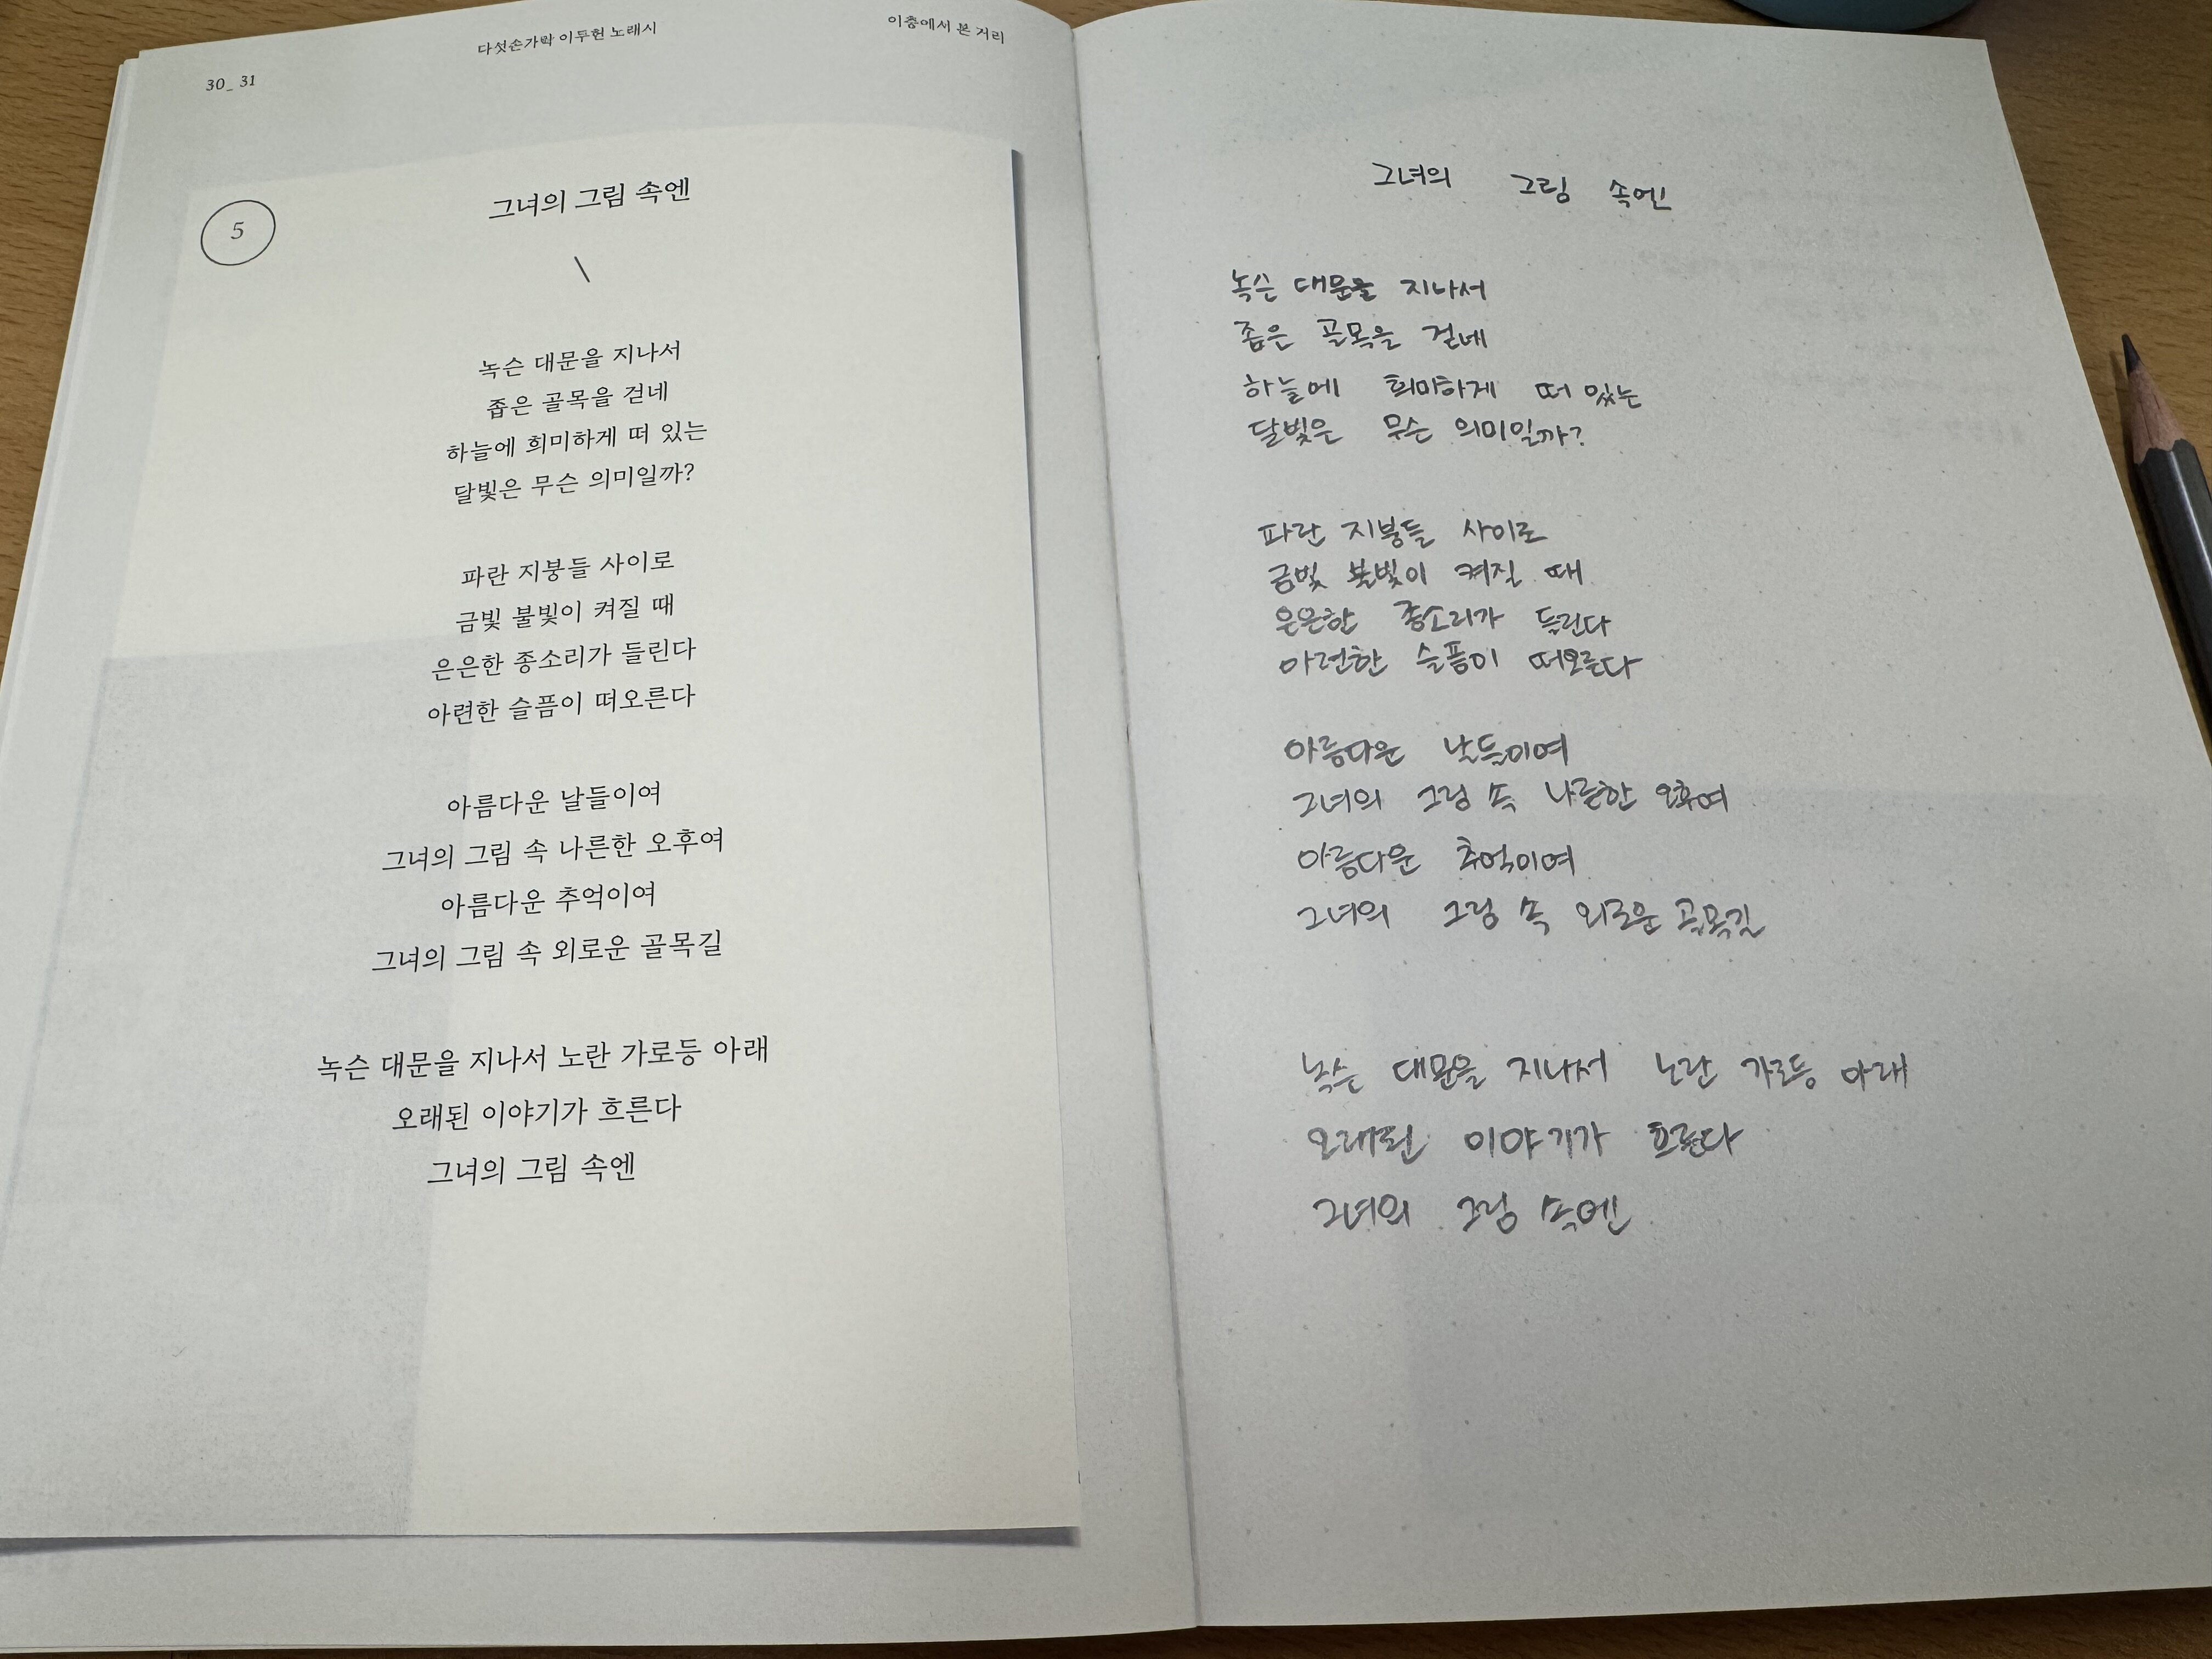 다섯손가락 이두헌 노래시
이층에서 본 거리
30_ 31
5
그녀의 그림 속엔
녹슨 대문을 지나서
좁은 골목을 걷네
하늘에 희미하게 떠 있는
달빛은 무슨 의미일까?
파란 지붕들 사이로
금빛 불빛이 켜질 때
은은한 종소리가 들린다
아련한 슬픔이 떠오른다
아름다운 날들이여
그녀의 그림 속 나른한 오후여
아름다운 추억이여
그녀의 그림 속 외로운 골목길
녹슨 대문을 지나서 노란 가로등 아래
오래된 이야기가 흐른다
그녀의 그림 속엔
그녀의 그림 속엔
녹슨 대문을 지나서
좁은 골목을 걷네
하늘에 희미하게 떠 있는
달빛은 무슨 의미일까?
파란 지붕들 사이로
금빛 불빛이 켜질 때
은은한 종소리가 들린다
아련한 슬픔이 떠오른다
아름다운 날들이여
그녀의 그림 속 나른한 오후여
아름다운 추억이여
그녀의 그림 속 외로운 골목길
녹슨 대문을 지나서 노란 가로등 아래
오래된 이야기가 흐른다
그녀의 그림 속엔